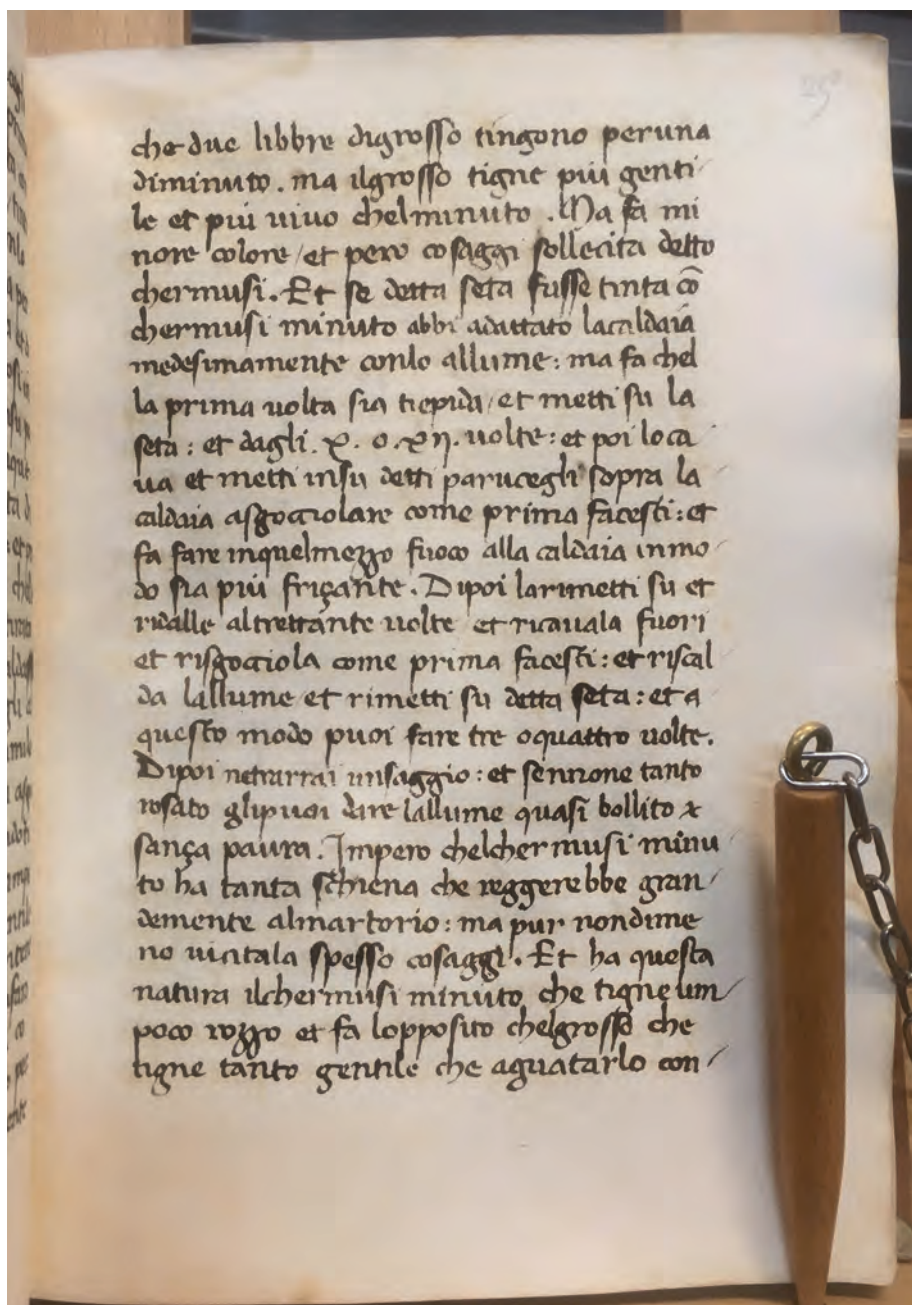 che due libbre digrosso tingono peruna
diminuto. ma ilgrosso tigne piu genti
le et piu uiuo chelminuto. Ma fa mi
nore colore / et pero cosaggi sollecita detto
chermusi. Et se detta seta fusse tinta cō
chermusi minuto abbi adattato lacaldaia
medesimamente conlo allume: ma fa chel
la prima uolta sia tiepida / et metti su la
seta: et dagli. x. o. xij. uolte: et poi loca
ua et metti insu detti parucegli sopra la
caldaia asgocciolare come prima facesti: et
fa fare inquelmezzo fuoco alla caldaia inmo
do sia piu friçante. Dipoi larimetti su et
ridalle altrettante uolte et ricauala fuori
et risgocciola come prima facesti: et riscal
da lallume et rimetti su detta seta: et a
questo modo puoi fare tre oquattro uolte.
Dipoi netrarrai unsaggio: et sennone tanto
rosato glipuoi dare lallume quasi bollito &
sança paura. Impero chelchermusi minu
to ha tanta schiena che reggerebbe gran
demente almartorio: ma pur nondime
no uicitala spesso cosaggi. Et ha questa
natura ilchermusi minuto che tigne um
poco rozzo et fa lopposito chelgrosso che
tigne tanto gentile che aguatarlo con